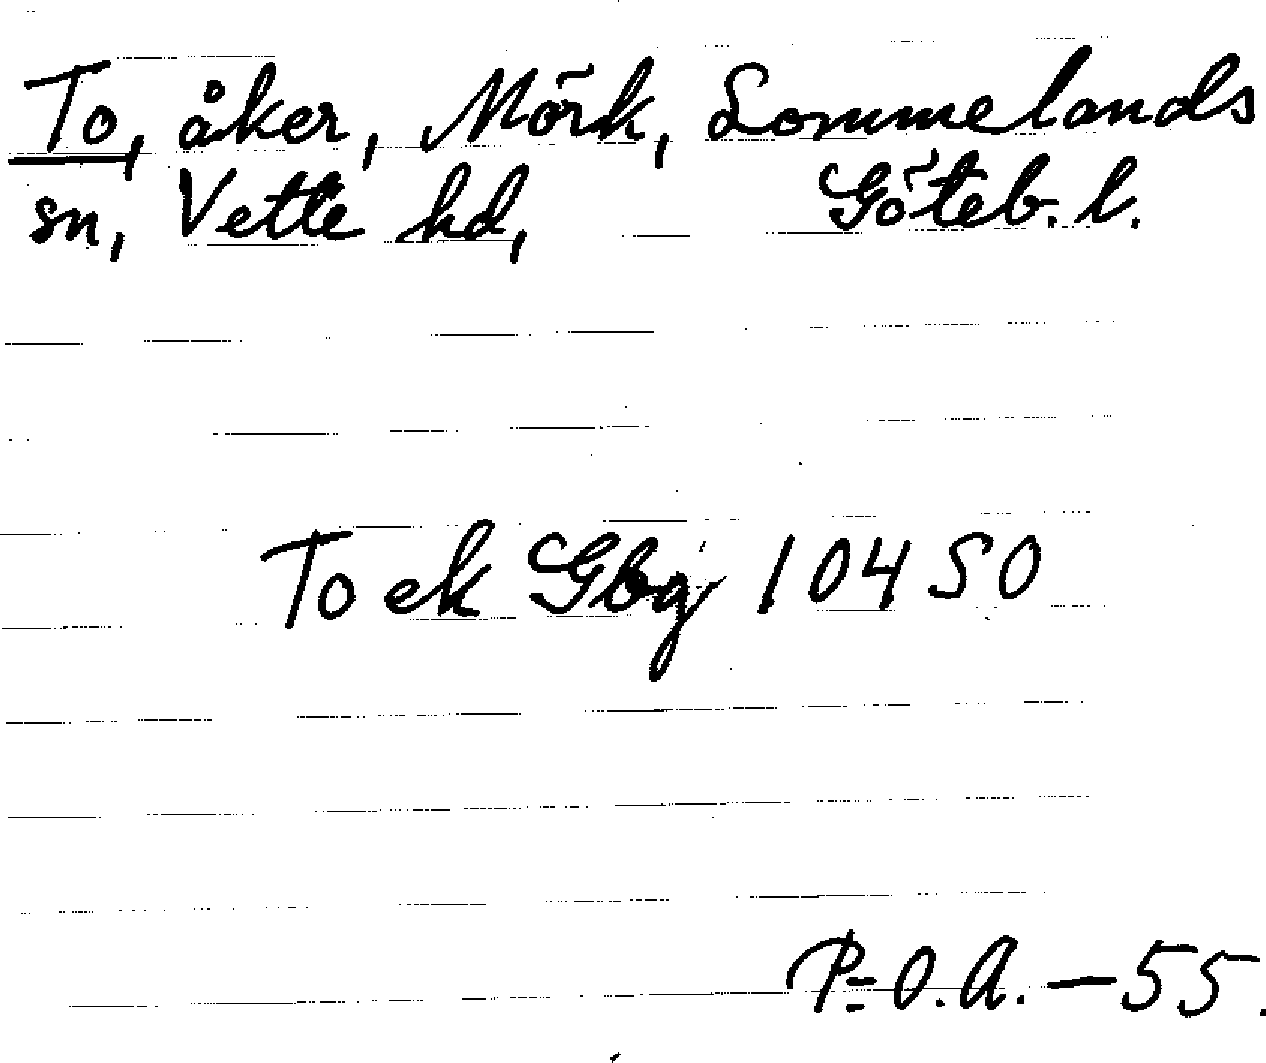 To, åker, Mörk, Lommelands
sn, Vette hd, Göteb. l.
To ek Gbg 10450
P-O.A. — 55.